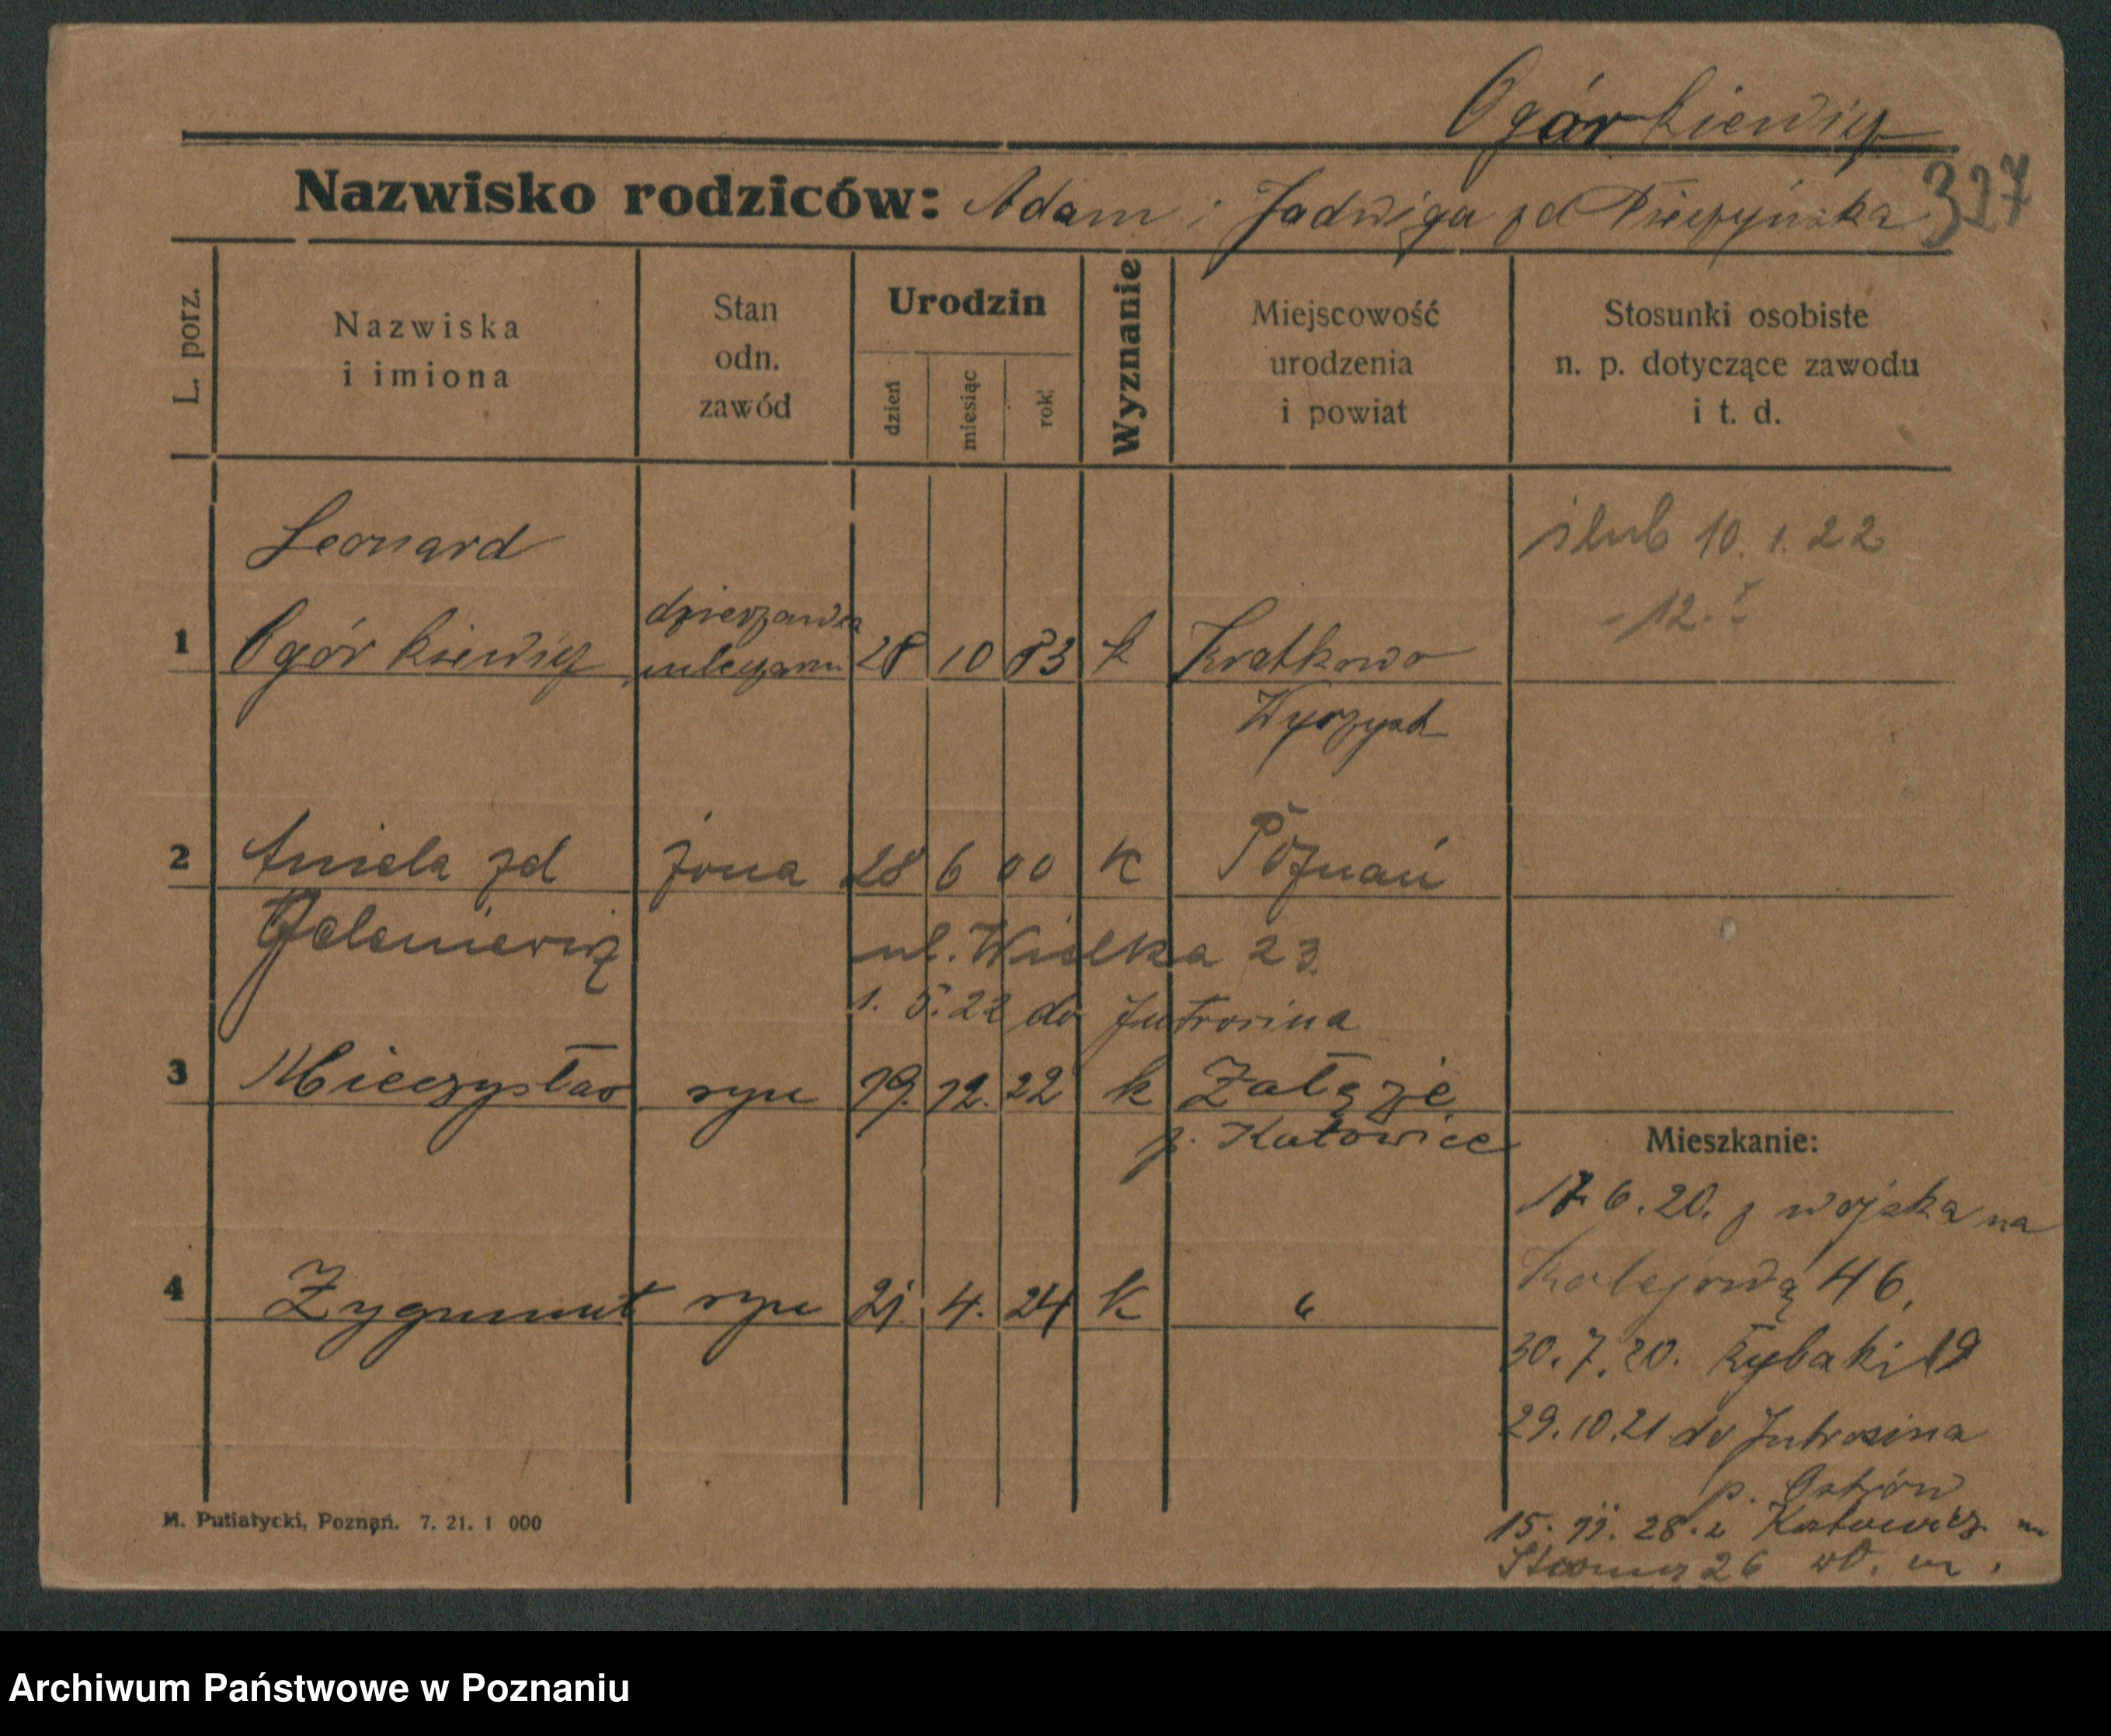 Ogórkiewicz
327
Nazwisko rodziców: Adam i Jadwiga zd
L. porz.
Nazwiska
i imiona
Stan
odn.
zawód
Urodzin
dzień
miesiąc
rok
Wyznanie
Miejscowość
urodzenia
i powiat
Stosunki osobiste
n. p. dotyczące zawodu
i t. d.
Leonard
ślub 10. 1. 22
- 12.
dzierżawca
1 Ogórkiewicz 28 10 83 k
Wyrzysk
2 Aniela zd żona 28 6 00 k Poznań
ul. Wielka 23
1. 5. 22 do Jutrosina
3 Mieczysław syn 19. 12. 22 k Załęże
p. Katowice
Mieszkanie:
17. 6. 20. z wojska na
Kolejową 46.
4 Zygmunt syn 21. 4. 24 k "
30. 7. 20. Rybaki 19
29. 10. 21 do Jutrosina
p. Ostrów
15. 11. 28. z Katowic
26
M. Putiatycki, Poznań. 7. 21. 1 000
Archiwum Państwowe w Poznaniu